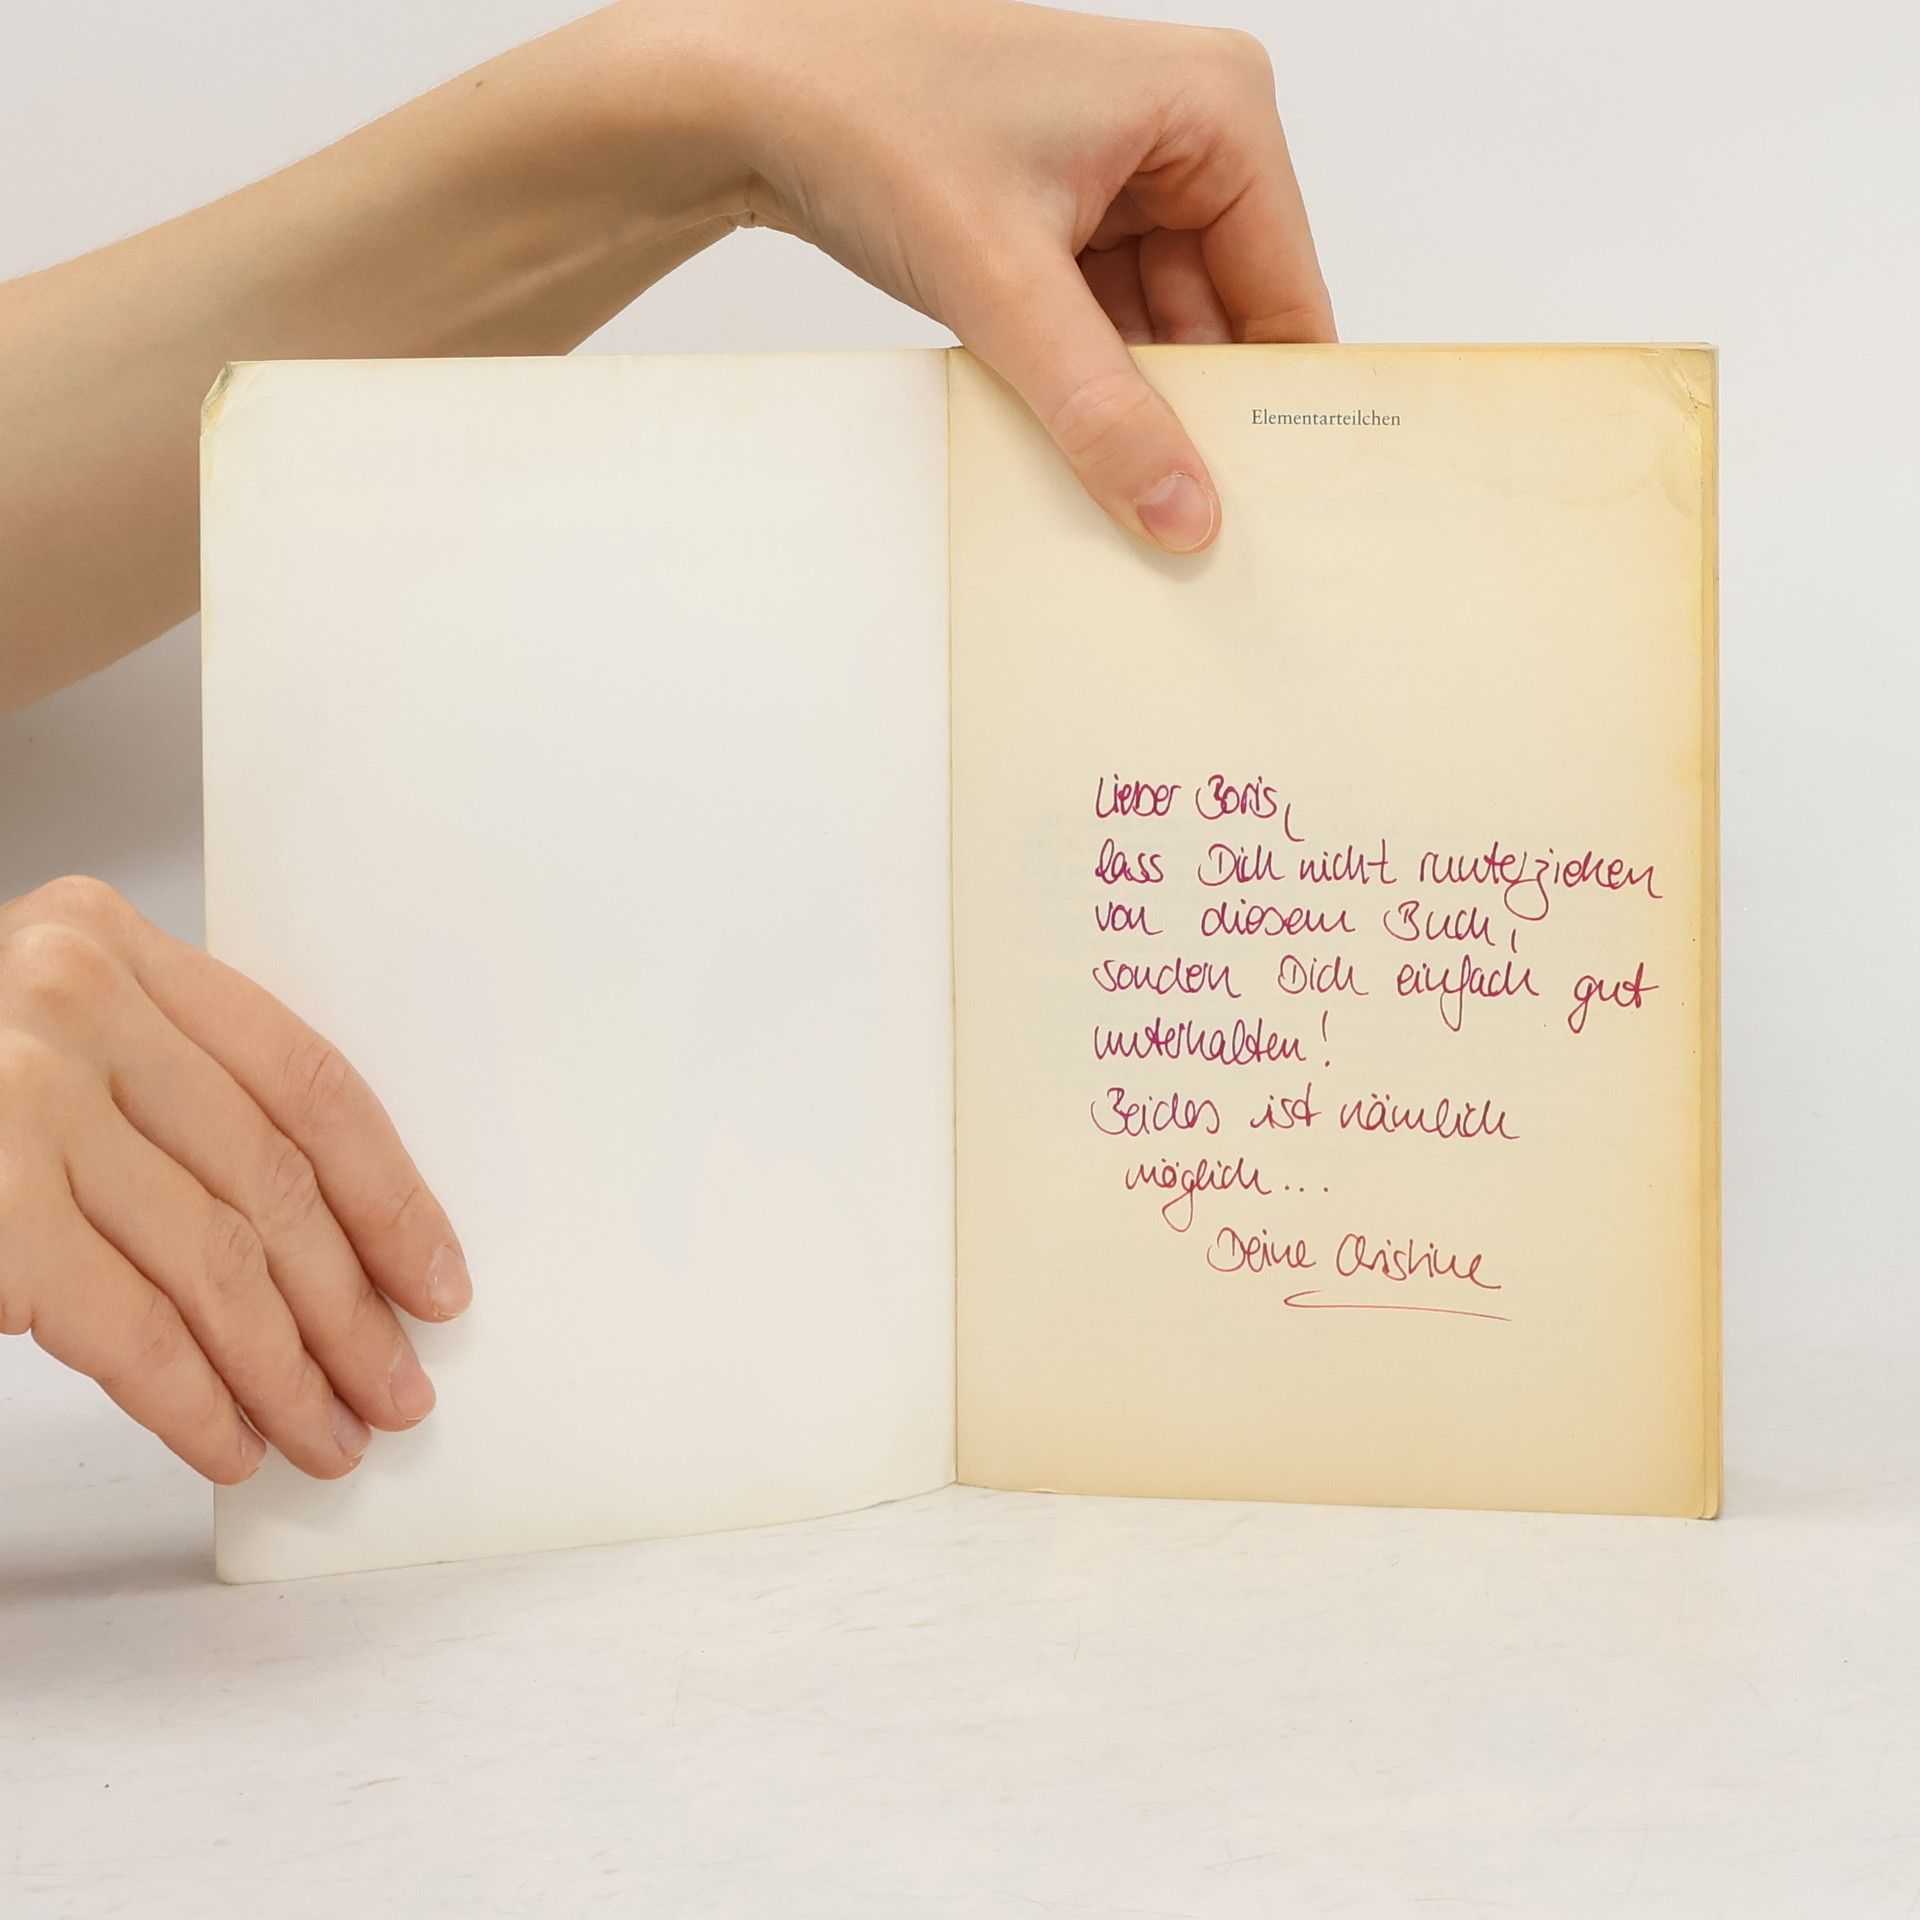 Elementarteilchen
Lieber Boris,
lass Dich nicht runterziehen
von diesem Buch,
sondern Dich einfach gut
unterhalten!
Beides ist nämlich
möglich...
Deine Christine